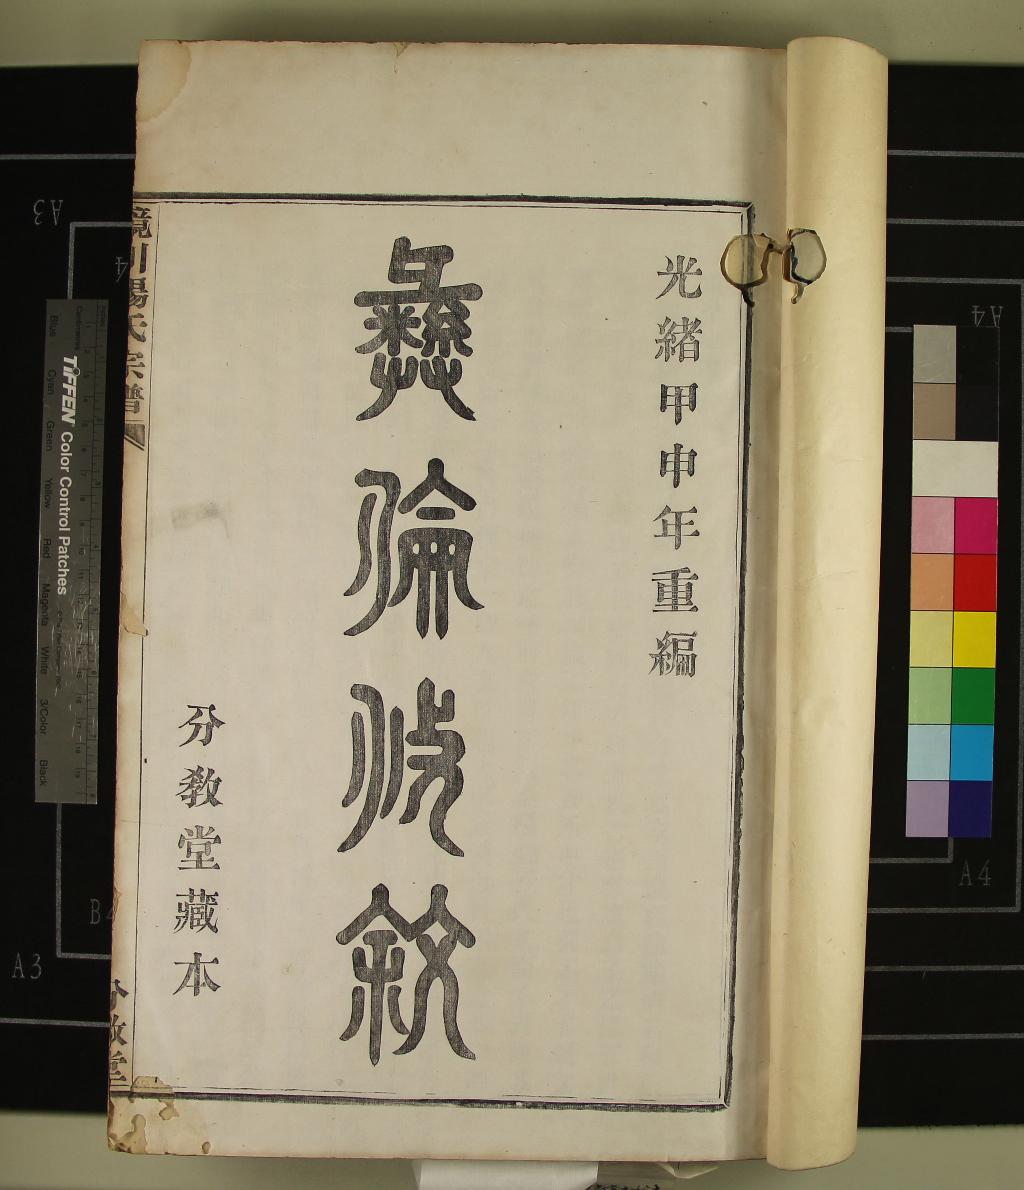 光緒甲申年重編
彝倫攸敘
分教堂藏本
鏡川楊氏宗譜
分教堂
TIFFEN Color Control Patches
Blue
Cyan
Green
Yellow
Red
Magenta
White
3/Color
Black
A3
A4
A4
B4
A3
A4